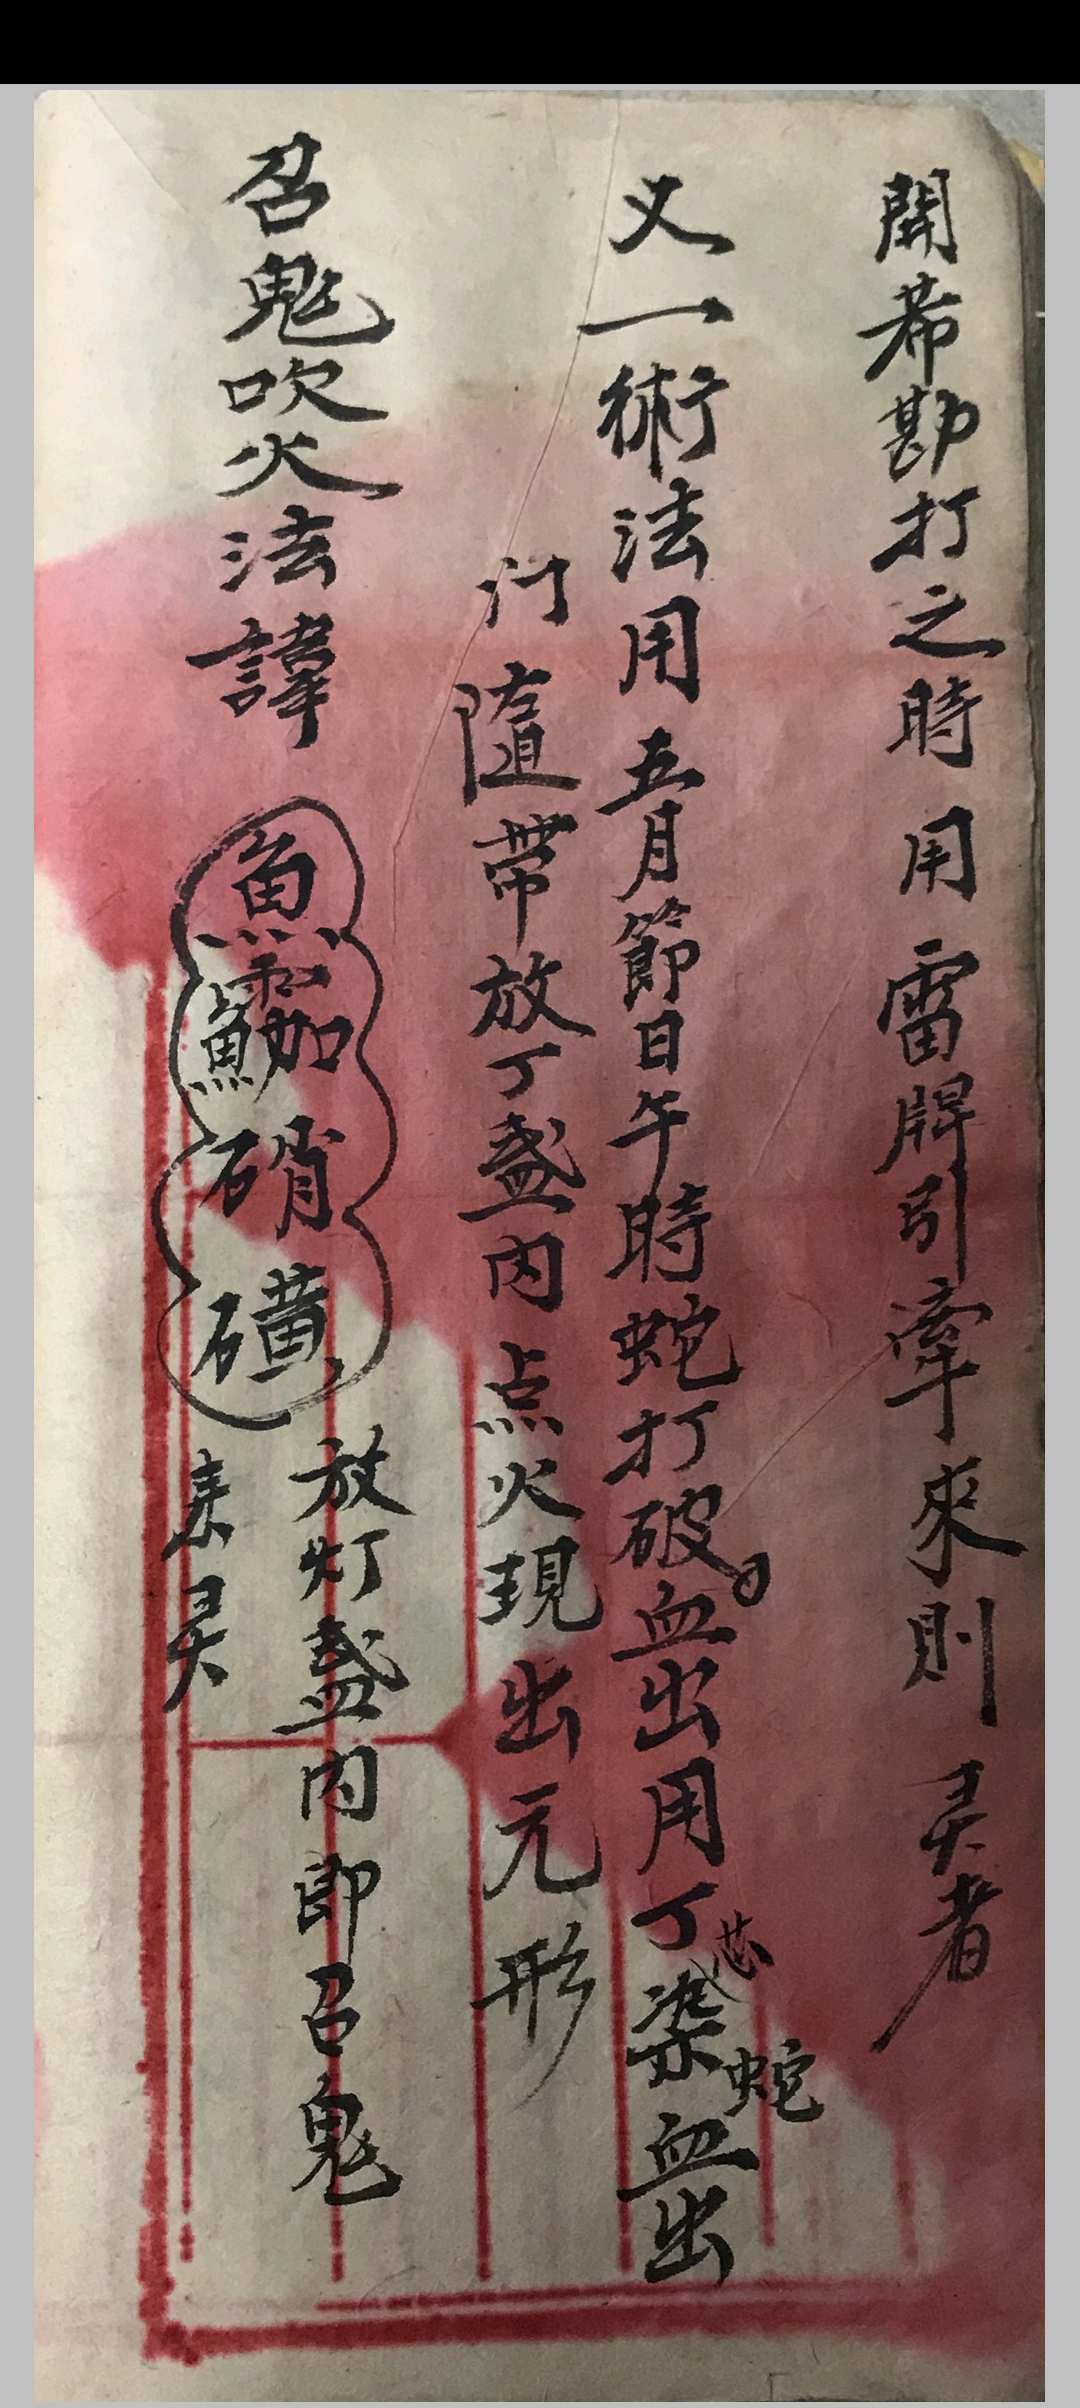 開希勘打之時用雷牌引牽來則灵者
又一術法用五月節日午時蛇打破血出用丁芯染蛇血出
汁隨帶放丁盞内点火現出元形
召鬼吹火法諱
硝磺
放灯盏内即召鬼
来灵